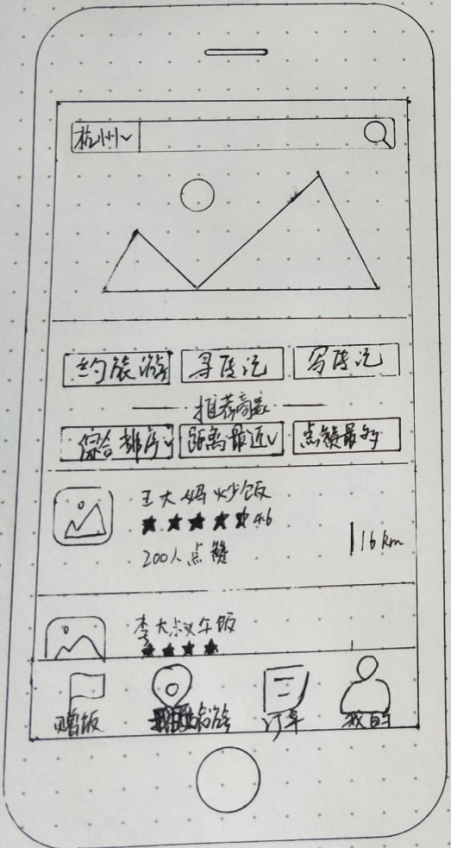 杭州
约旅游 寻传说 写传说
推荐商家
综合排序 距离最近 点赞最多
王大妈炒饭
4.6
200人点赞
16km
李大叔午饭
订单 我的